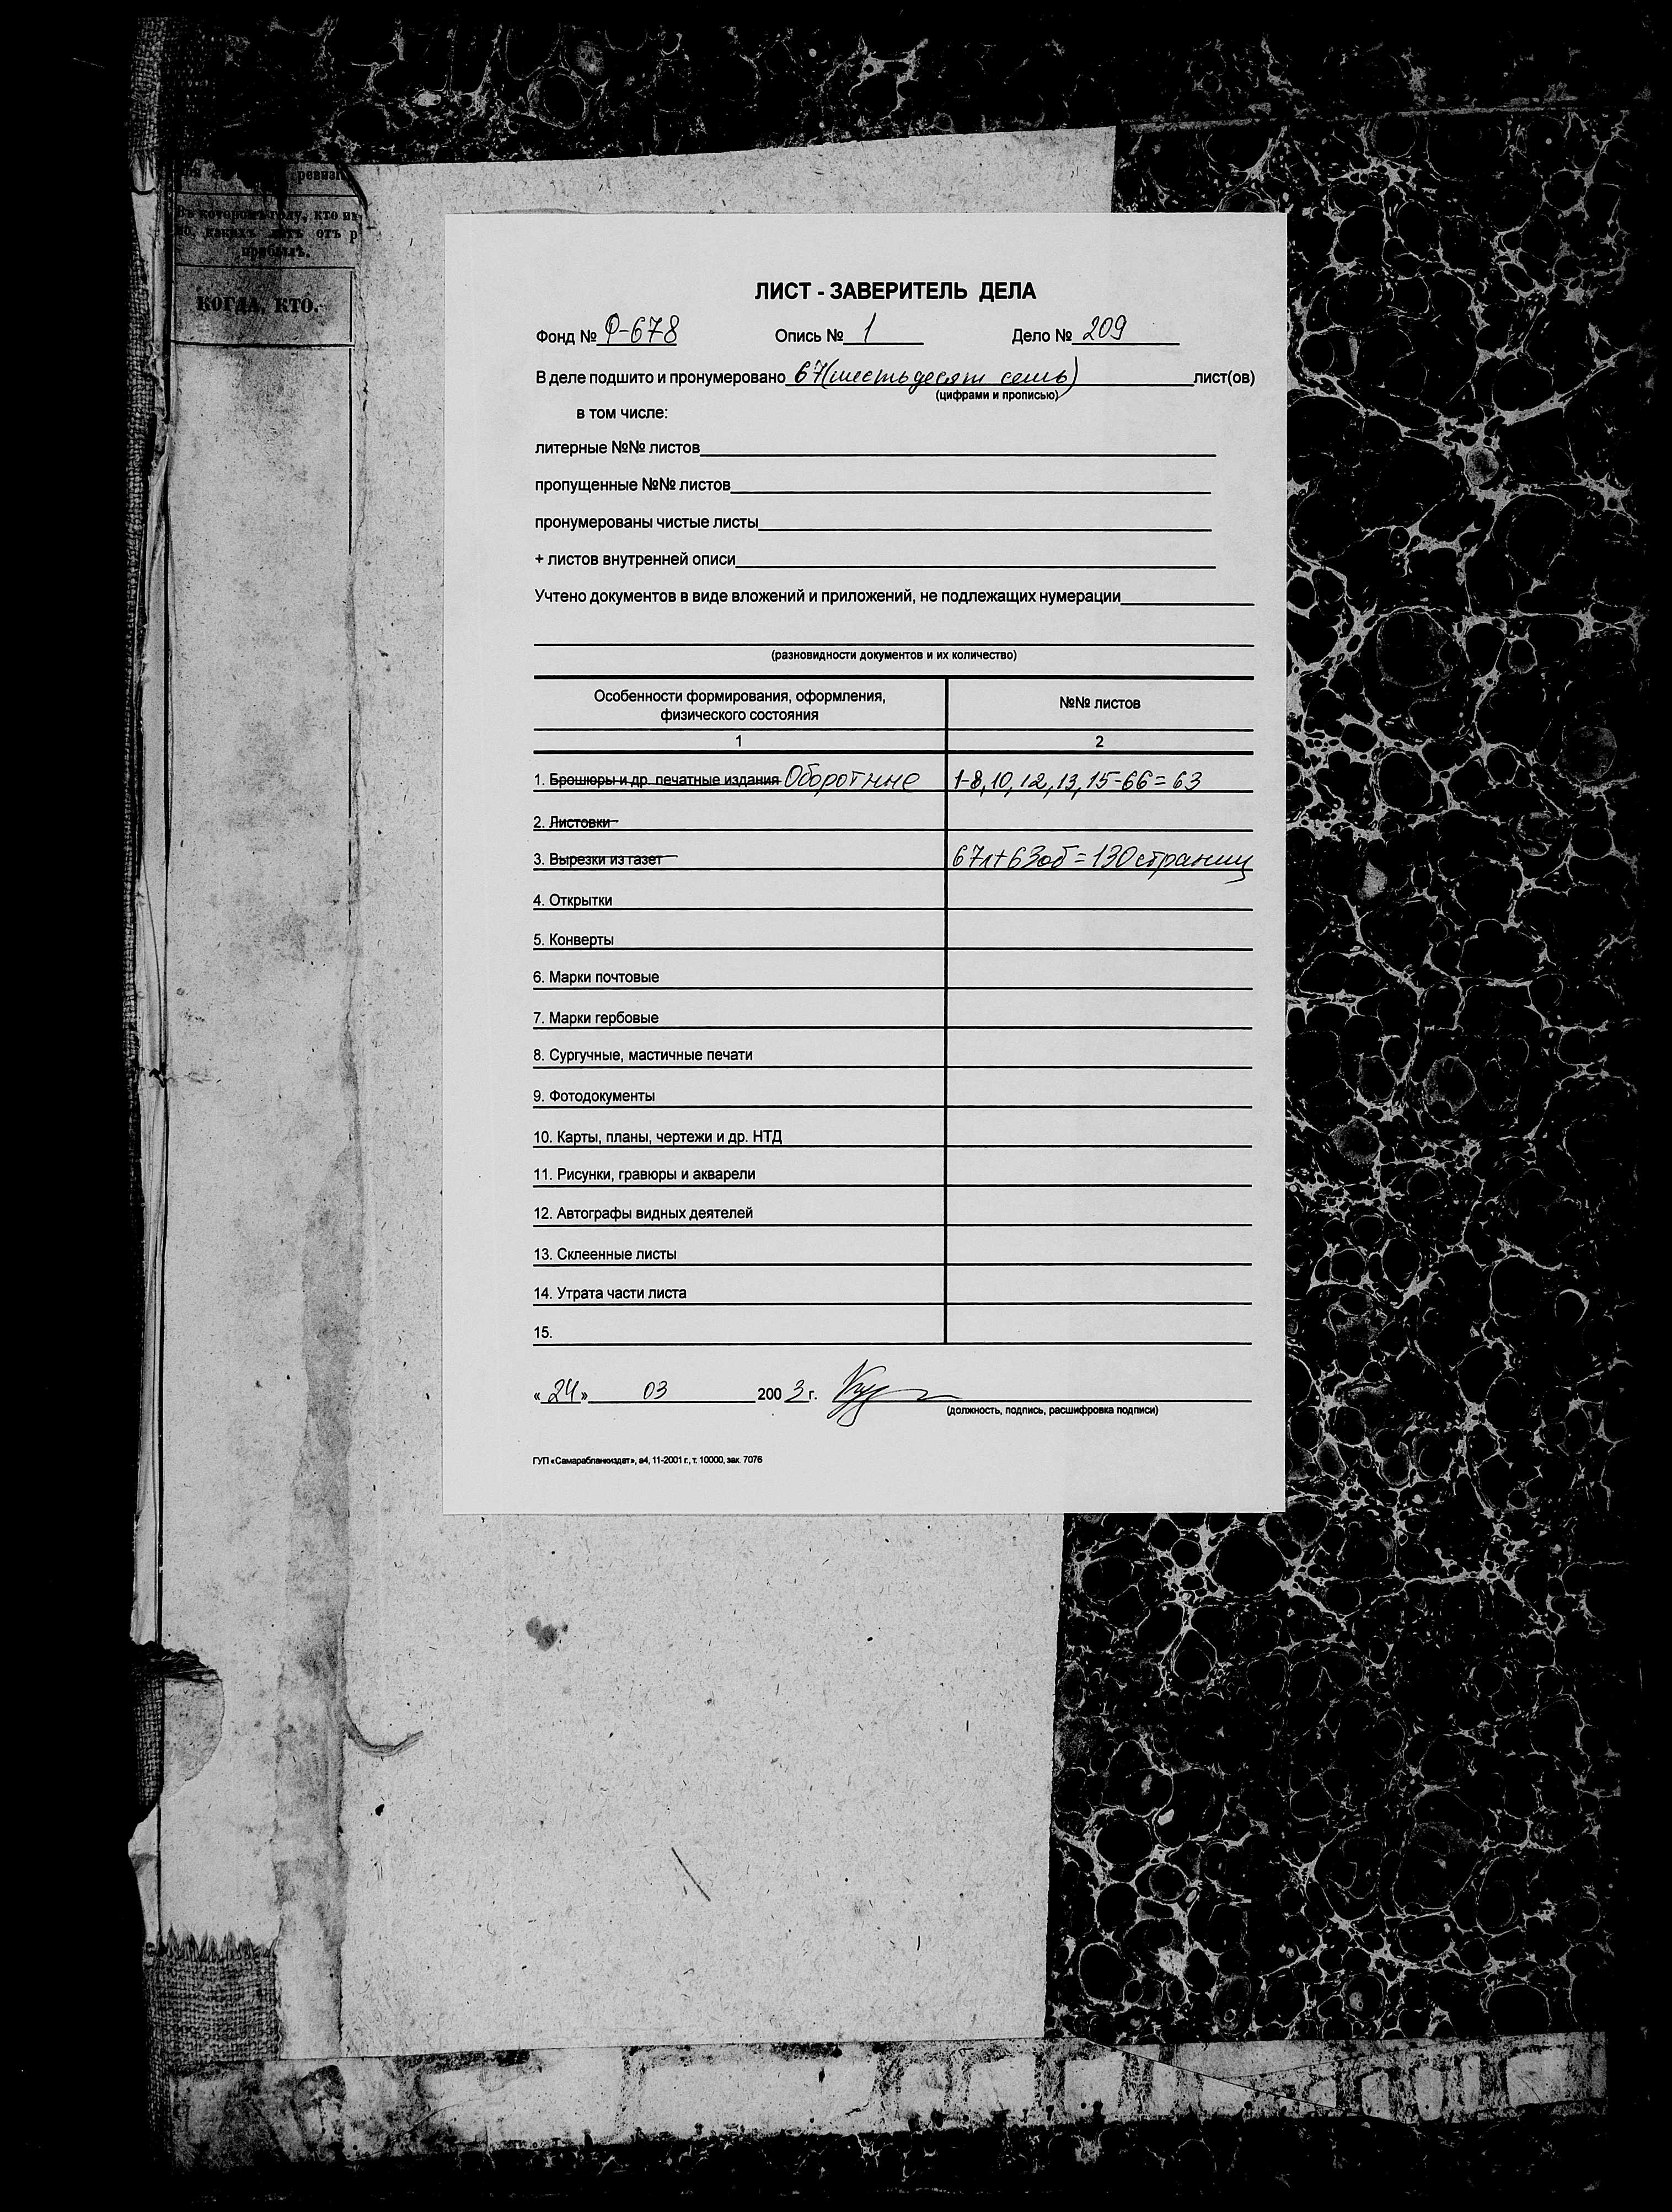 ревизі
Въ которомъ году, кто из
но, какихъ лѣтъ отъ р
прибылъ.
КОГДА, КТО.
ЛИСТ - ЗАВЕРИТЕЛЬ ДЕЛА
Фонд № Ф-678 Опись № 1 Дело № 209
В деле подшито и пронумеровано 67(шестьдесят семь) лист(ов)
(цифрами и прописью)
в том числе:
литерные №№ листов
пропущенные №№ листов
пронумерованы чистые листы
+ листов внутренней описи
Учтено документов в виде вложений и приложений, не подлежащих нумерации
(разновидности документов и их количество)
Особенности формирования, оформления, №№ листов
физического состояния
1 2
1. Брошюры и др. печатные издания Оборотные 1-8, 10, 12, 13, 15-66 = 63
2. Листовки
3. Вырезки из газет 67л+63об = 130 страниц
4. Открытки
5. Конверты
6. Марки почтовые
7. Марки гербовые
8. Сургучные, мастичные печати
9. Фотодокументы
10. Карты, планы, чертежи и др. НТД
11. Рисунки, гравюры и акварели
12. Автографы видных деятелей
13. Склеенные листы
14. Утрата части листа
15.
« 24 » 03 200 3 г.
(должность, подпись, расшифровка подписи)
ГУП «Самарабланкиздат», а4, 11-2001 г., т. 10000, зак. 7076